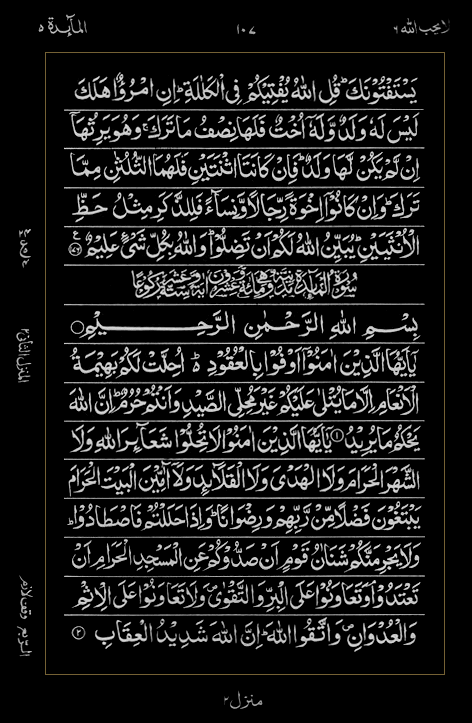 لا يحب الله ٦
١٠٧
المآئدة ٥
يَسْتَفْتُوْنَكَ ؕ قُلِ اللّٰهُ يُفْتِيْكُمْ فِى الْكَلٰلَةِ ؕ اِنِ امْرُؤٌا هَلَكَ
لَيْسَ لَهٗ وَلَدٌ وَّلَهٗۤ اُخْتٌ فَلَهَا نِصْفُ مَا تَرَكَ ۚ وَهُوَ يَرِثُهَاۤ
اِنْ لَّمْ يَكُنْ لَّهَا وَلَدٌ ؕ فَاِنْ كَانَتَا اثْنَتَيْنِ فَلَهُمَا الثُّلُثٰنِ مِمَّا
تَرَكَ ؕ وَاِنْ كَانُوْۤا اِخْوَةً رِّجَالًا وَّنِسَآءً فَلِلذَّكَرِ مِثْلُ حَظِّ
الْاُنْثَيَيْنِ ؕ يُبَيِّنُ اللّٰهُ لَكُمْ اَنْ تَضِلُّوْا ؕ وَاللّٰهُ بِكُلِّ شَىْءٍ عَلِيْمٌ ﴿١٧٦﴾
بِسْمِ اللّٰهِ الرَّحْمٰنِ الرَّحِيْمِ
يٰۤاَيُّهَا الَّذِيْنَ اٰمَنُوْۤا اَوْفُوْا بِالْعُقُوْدِ ؕ اُحِلَّتْ لَكُمْ بَهِيْمَةُ
الْاَنْعَامِ اِلَّا مَا يُتْلٰى عَلَيْكُمْ غَيْرَ مُحِلِّى الصَّيْدِ وَاَنْتُمْ حُرُمٌ ؕ اِنَّ اللّٰهَ
يَحْكُمُ مَا يُرِيْدُ ﴿١﴾ يٰۤاَيُّهَا الَّذِيْنَ اٰمَنُوْا لَا تُحِلُّوْا شَعَآئِرَ اللّٰهِ وَلَا
الشَّهْرَ الْحَرَامَ وَلَا الْهَدْىَ وَلَا الْقَلَآئِدَ وَلَاۤ آٰمِّيْنَ الْبَيْتَ الْحَرَامَ
يَبْتَغُوْنَ فَضْلًا مِّنْ رَّبِّهِمْ وَرِضْوَانًا ؕ وَاِذَا حَلَلْتُمْ فَاصْطَادُوْا ؕ
وَلَا يَجْرِمَنَّكُمْ شَنَاٰنُ قَوْمٍ اَنْ صَدُّوْكُمْ عَنِ الْمَسْجِدِ الْحَرَامِ اَنْ
تَعْتَدُوْا ۘ وَتَعَاوَنُوْا عَلَى الْبِرِّ وَالتَّقْوٰى ۪ وَلَا تَعَاوَنُوْا عَلَى الْاِثْمِ
وَالْعُدْوَانِ ۪ وَاتَّقُوا اللّٰهَ ؕ اِنَّ اللّٰهَ شَدِيْدُ الْعِقَابِ ﴿٢﴾
منزل ٢